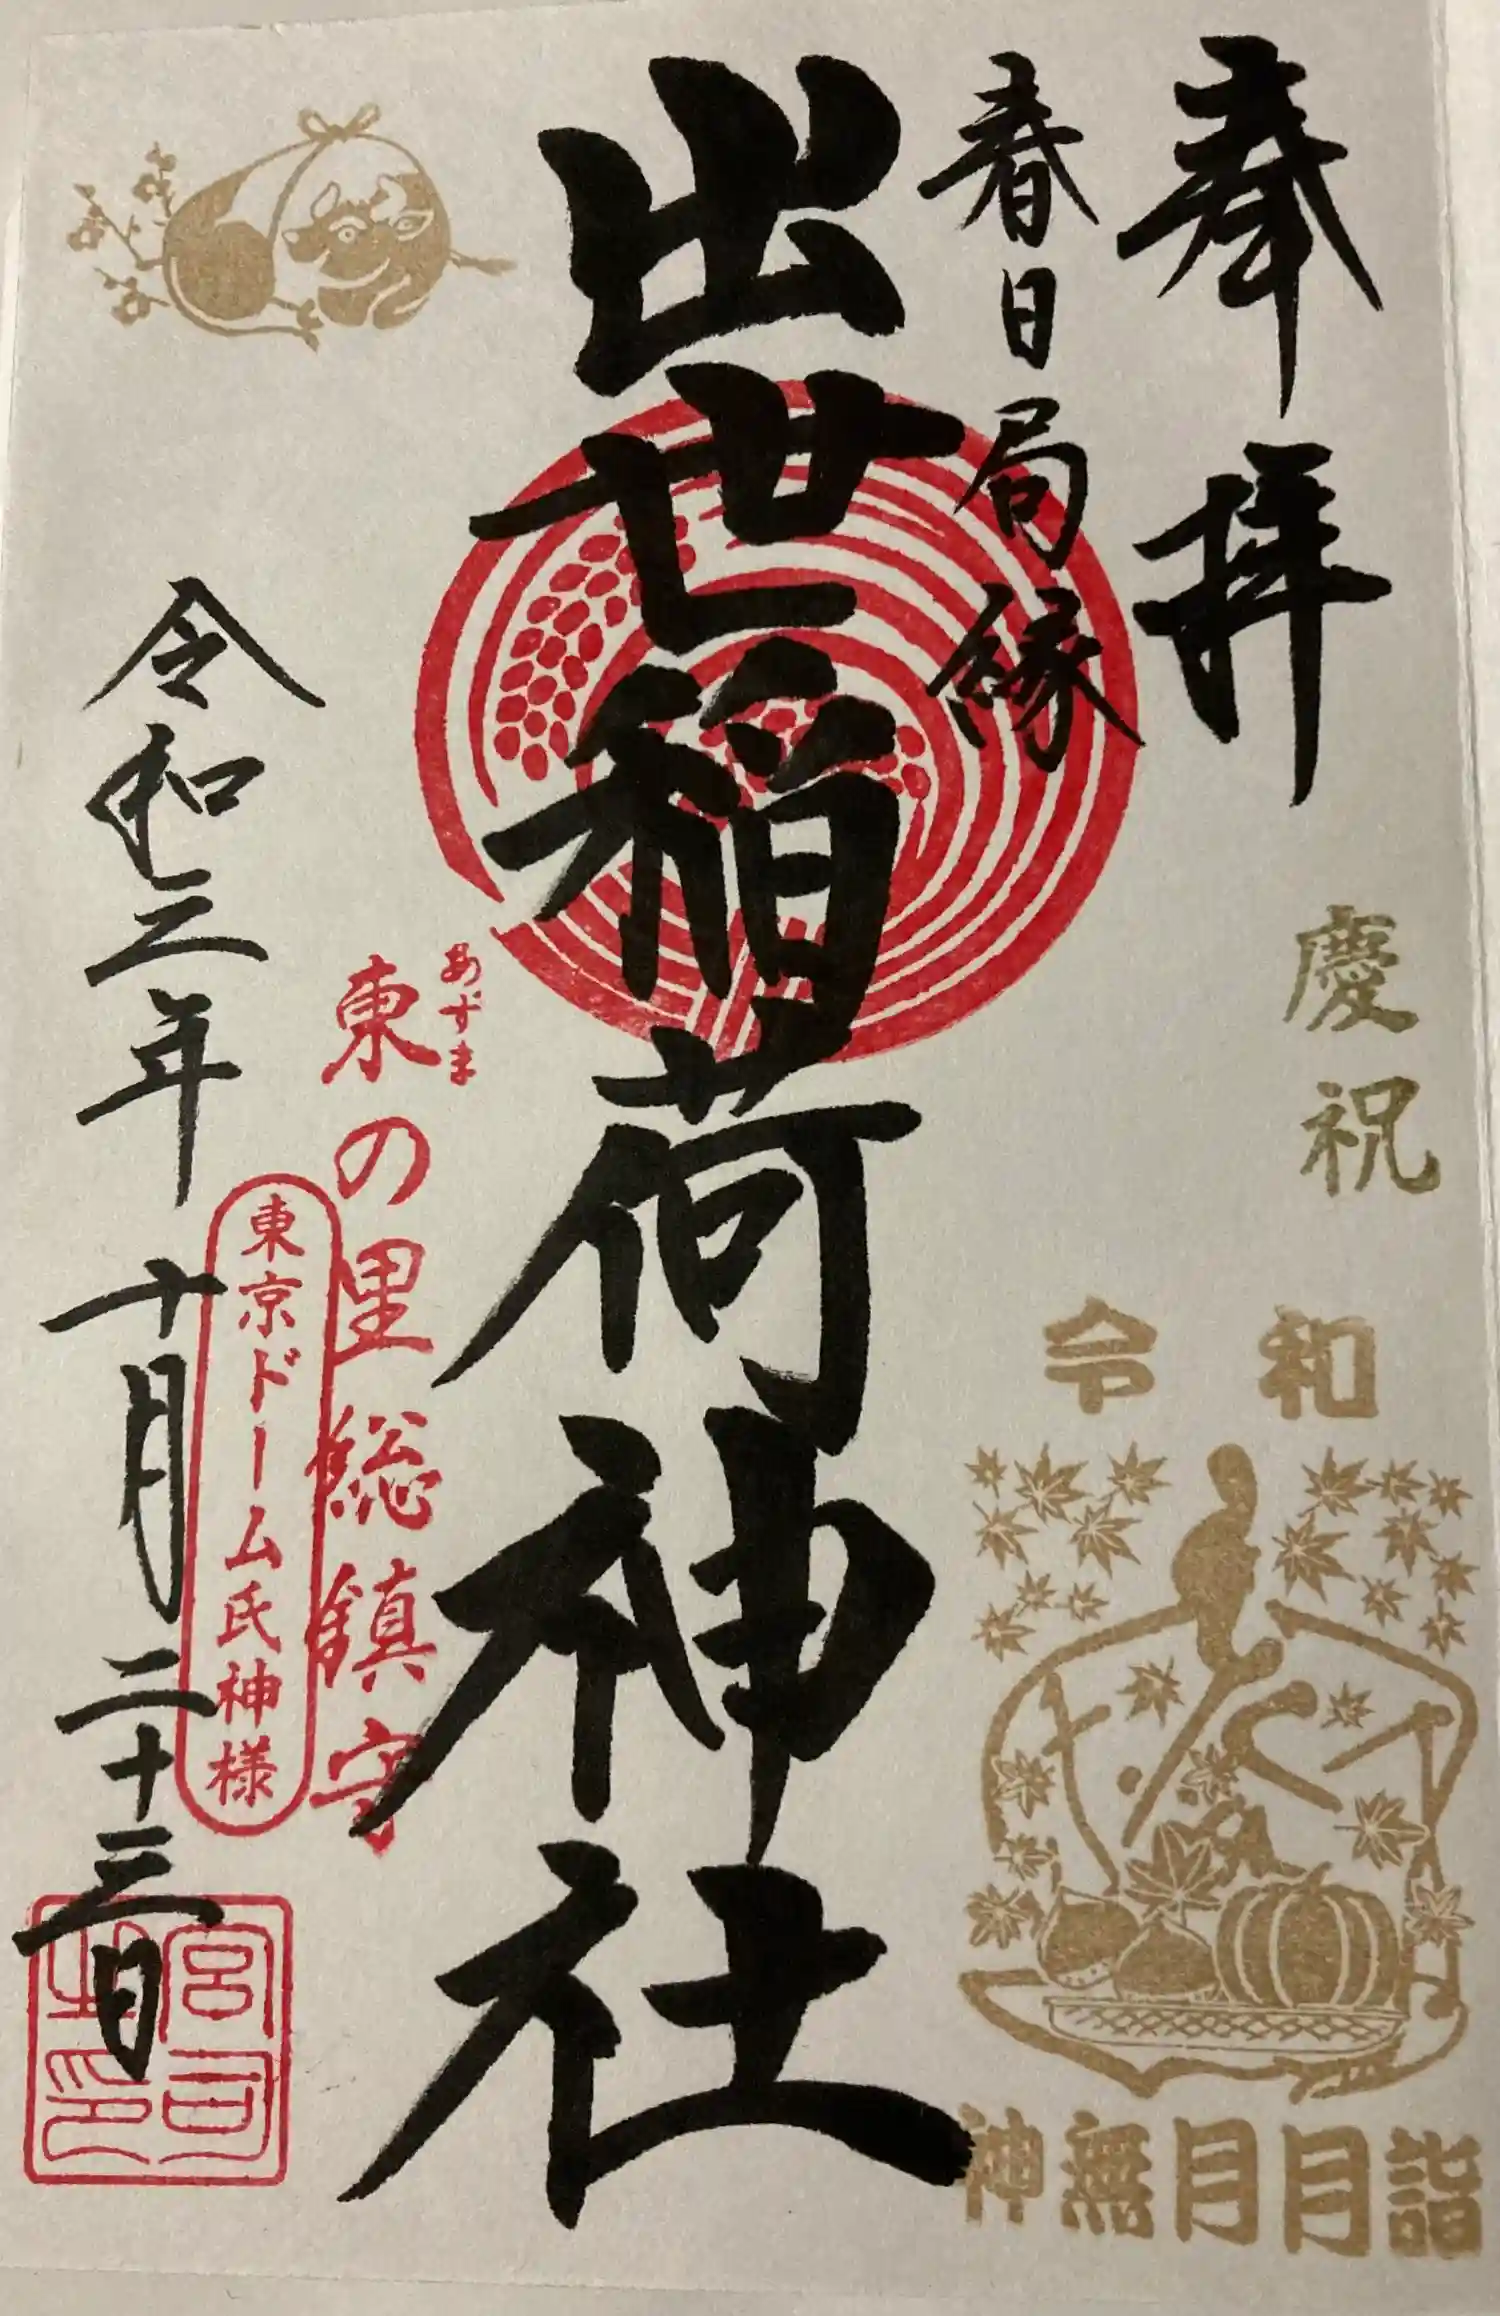 奉拝
春日局縁
出世稲荷神社
慶祝
令和
神無月月詣
あずま
東の里総鎮守
東京ドーム氏神様
令和三年十月二十三日
宮司之印